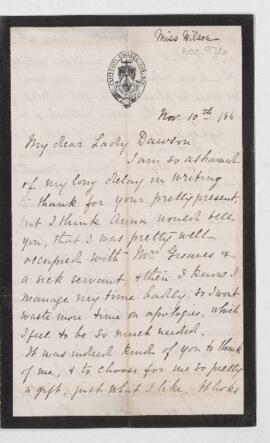 Miss Wilson
Nov. 10th /86
My dear Lady Dawson
I am so ashamed
of my long delay in writing
to thank for your pretty present,
but I think Anna would tell
you, that I was pretty well
occupied with Mrs Greaves &
a sick servant, & then I know I
manage my time badly, so I wont
waste more time on apologies, which
I feel to be so much needed.
It was indeed kind of you to think
of me, & to choose for me so pretty
a gift, just what I like. It looks